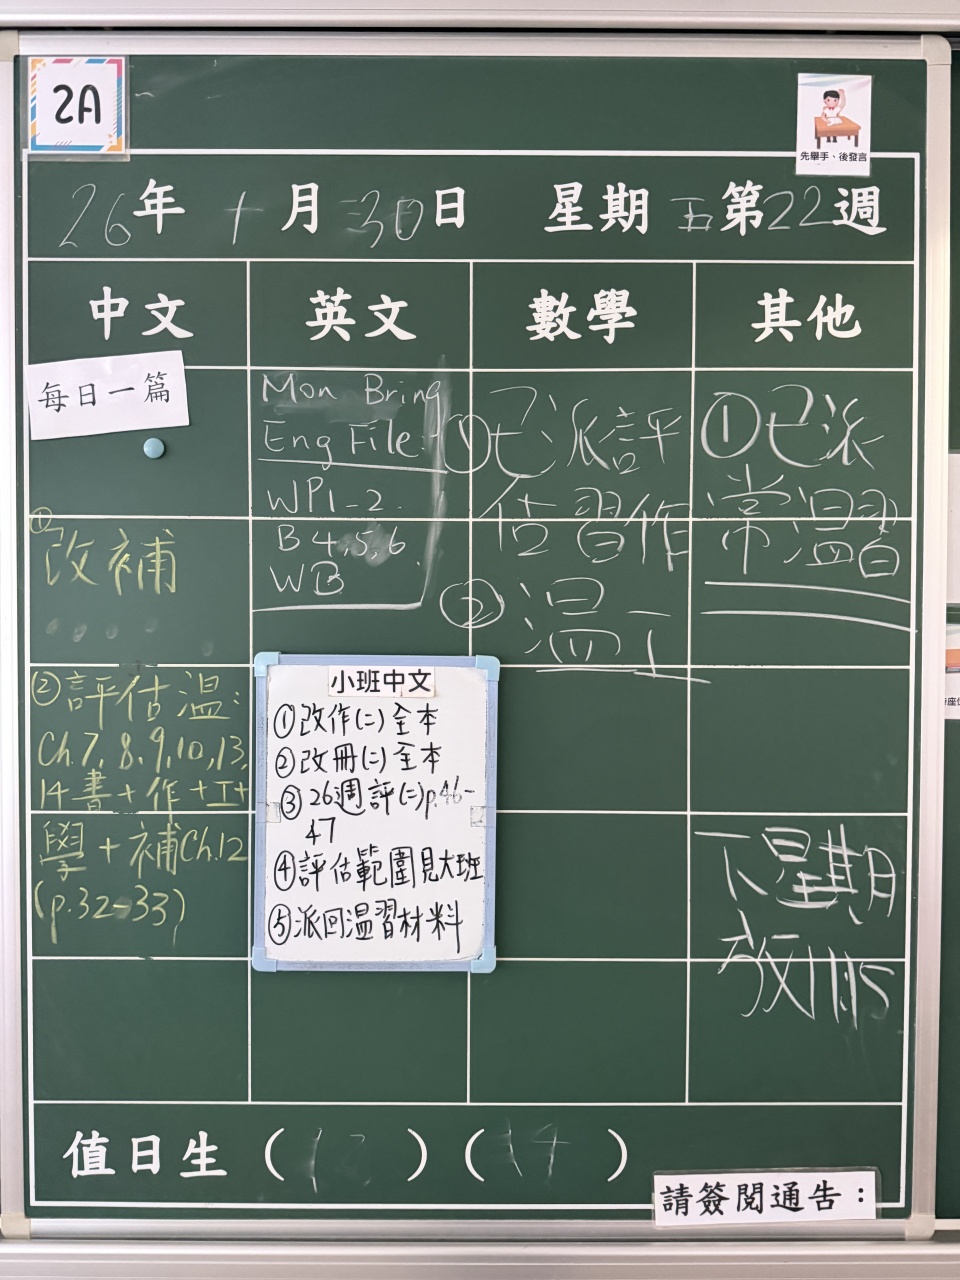 2A
先舉手、後發言
26年1月30日 星期五第22週
中文 英文 數學 其他
每日一篇
①改補
②評估溫:
Ch.7, 8, 9, 10, 13,
14書+作+工+
學+補Ch.12
(p.32-33)
Mon Bring
Eng File.
WP1-2
B 4, 5, 6
WB
小班中文
①改作(二)全本
②改冊(二)全本
③26週評(二)p.46-
47
④評估範圍見大班
⑤派回溫習材料
①已派評
估習作
②溫
①已派
常溫習
下星期
值日生 ( ) (14)
請簽閱通告：